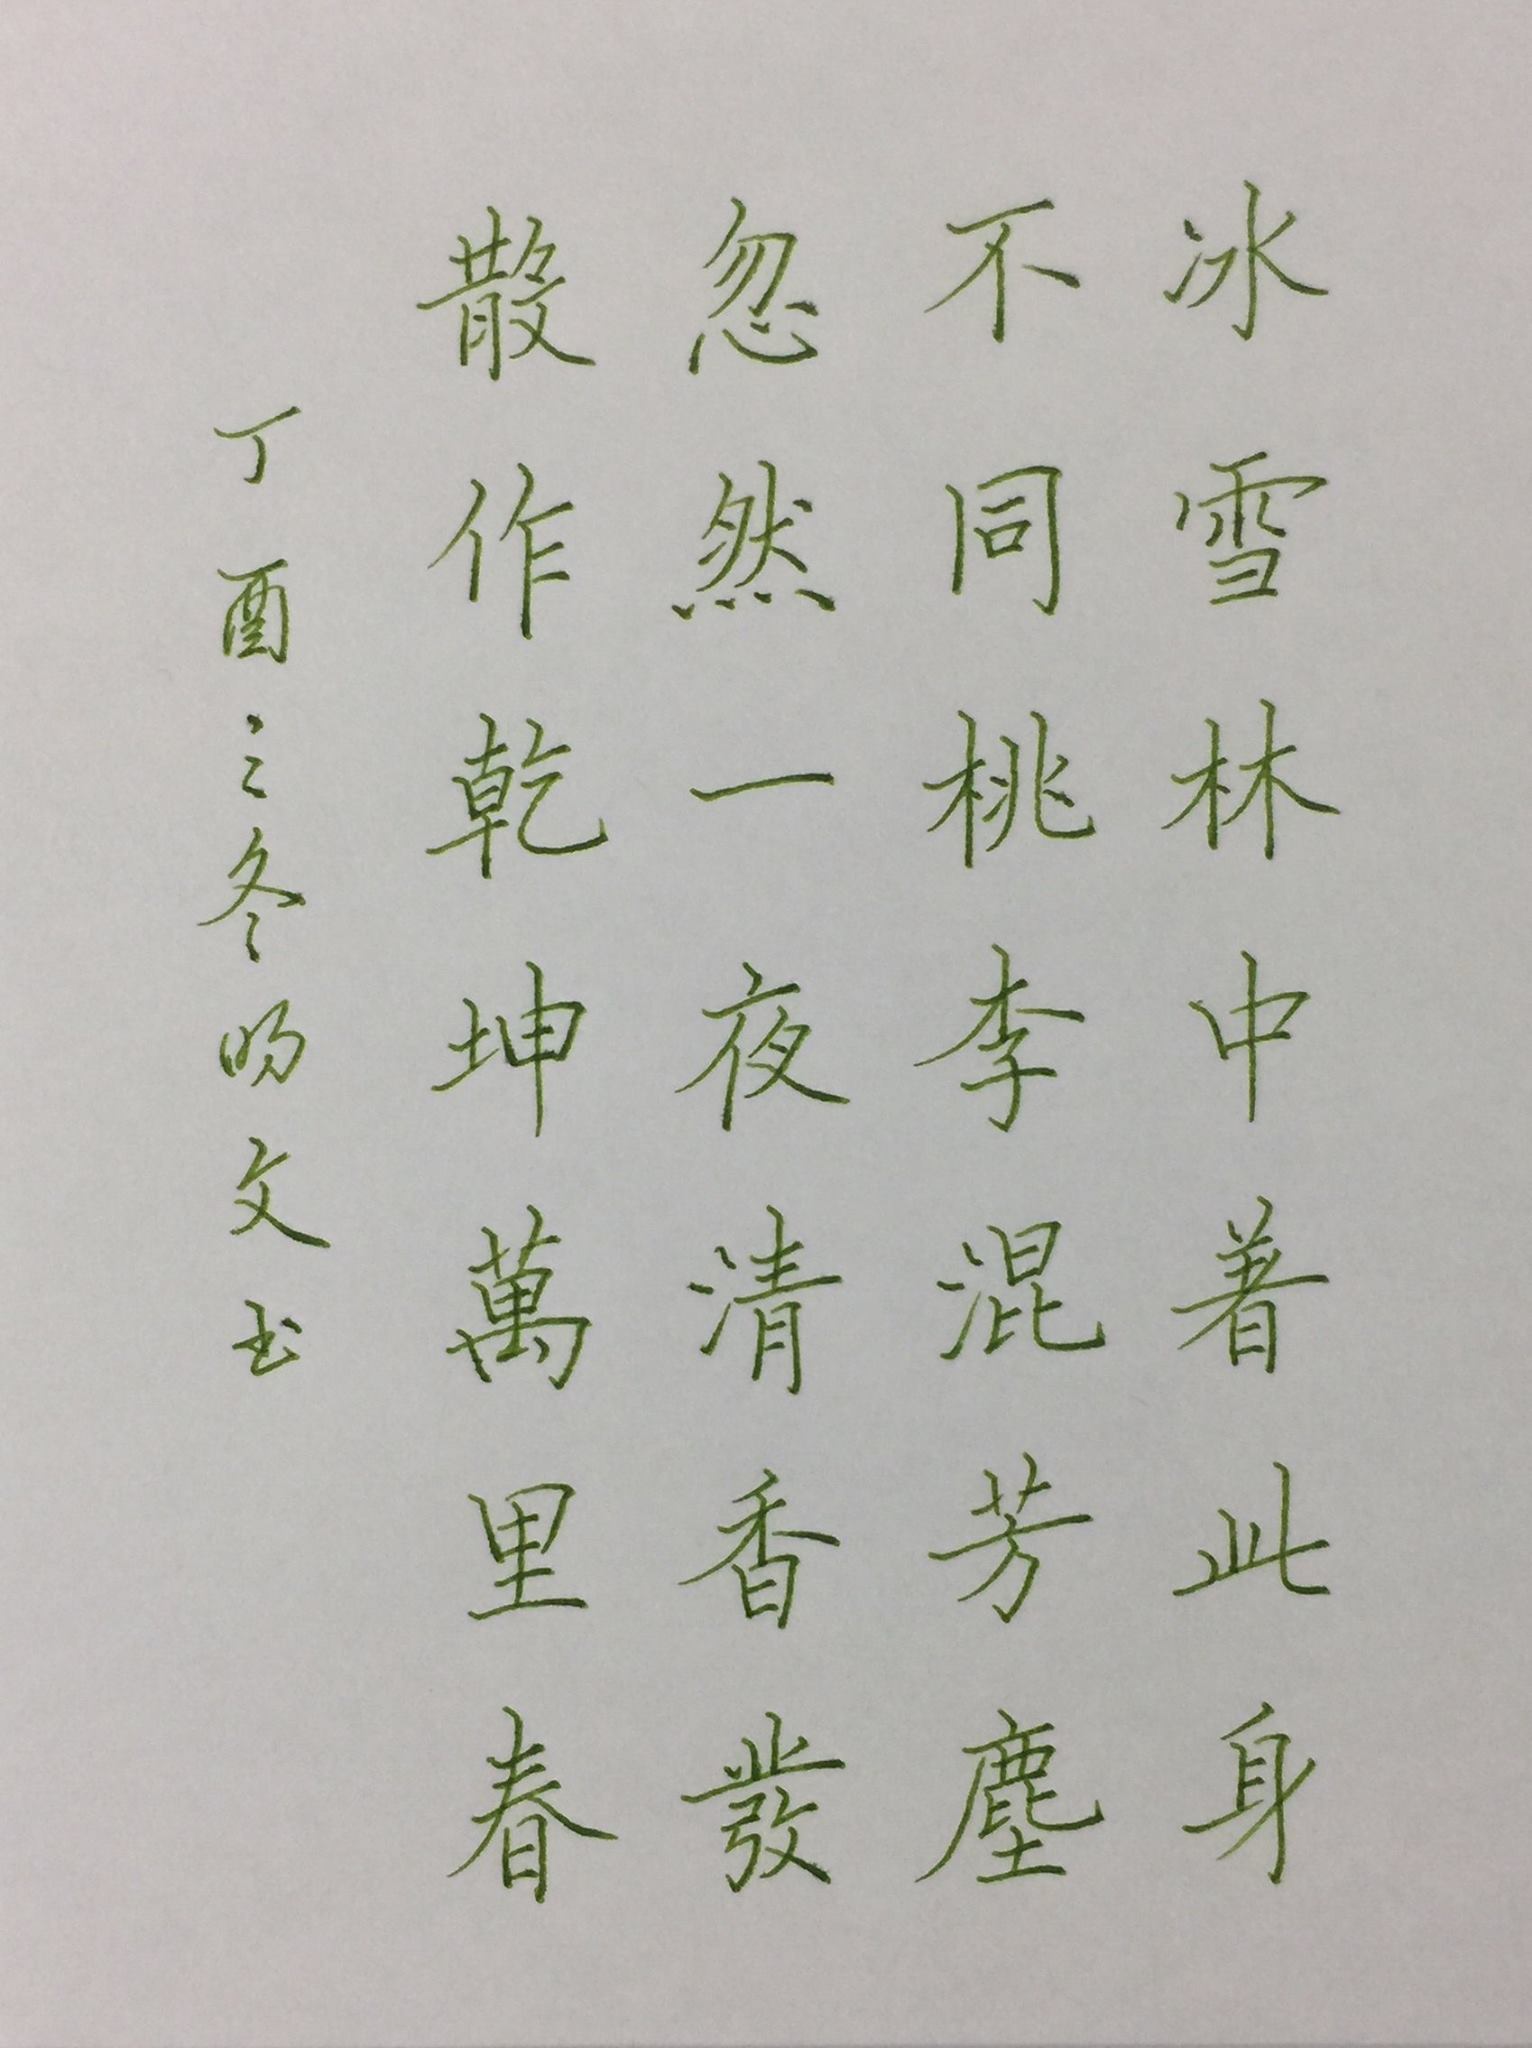 冰雪林中著此身
不同桃李混芳塵
忽然一夜清香發
散作乾坤萬里春
丁酉之冬昀文书